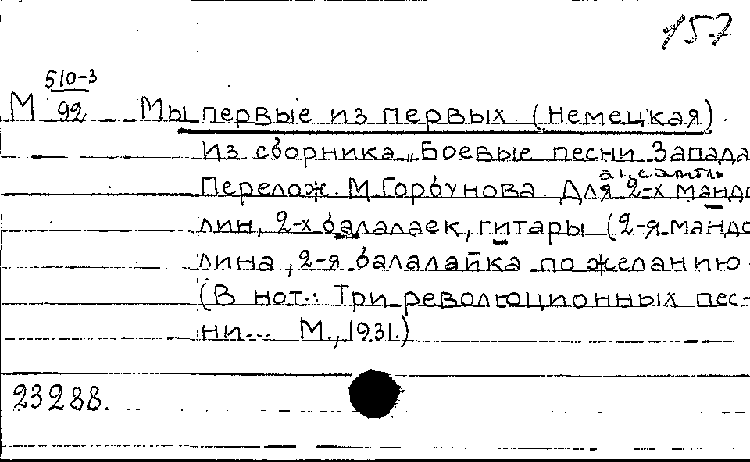 157
М 510-3/92 Мы первые из первых (Немецкая).
Из сборника „Боевые песни Запада
Перелож. М. Горбунова Для
ансамбль
2-х мандо
лин, 2-х балалаек, гитары (2-я мандо
лина, 2-я балалайка по желанию
(В нот.: Три революционных пес-
ни... М., 1931.)
23288.